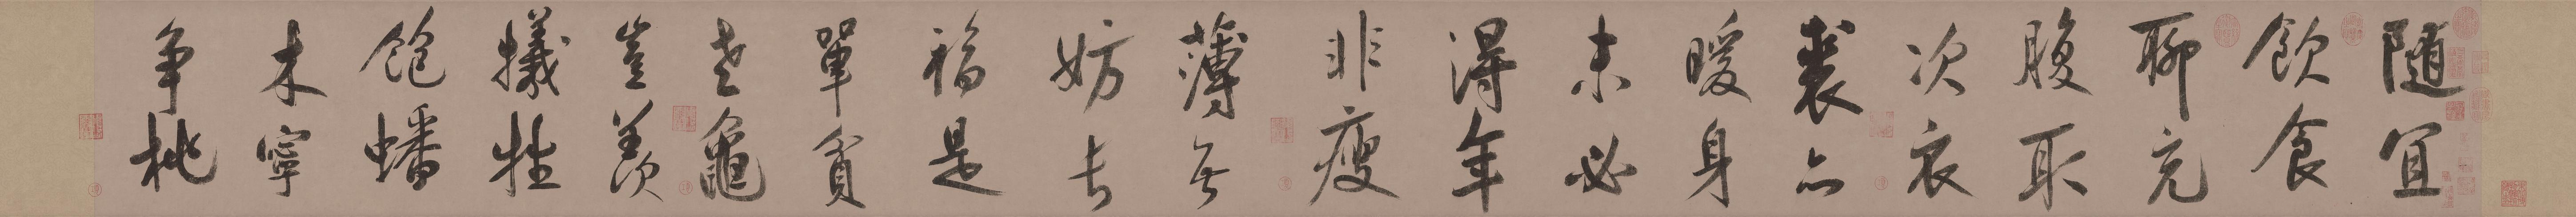 隨宜
飲食
聊充
腹取
次衣
裘亦
暖身
未必
得年
非瘦
薄無
妨長
福是
單貧
老龜
豈羨
犧牲
飽蟠
木寧
爭桃